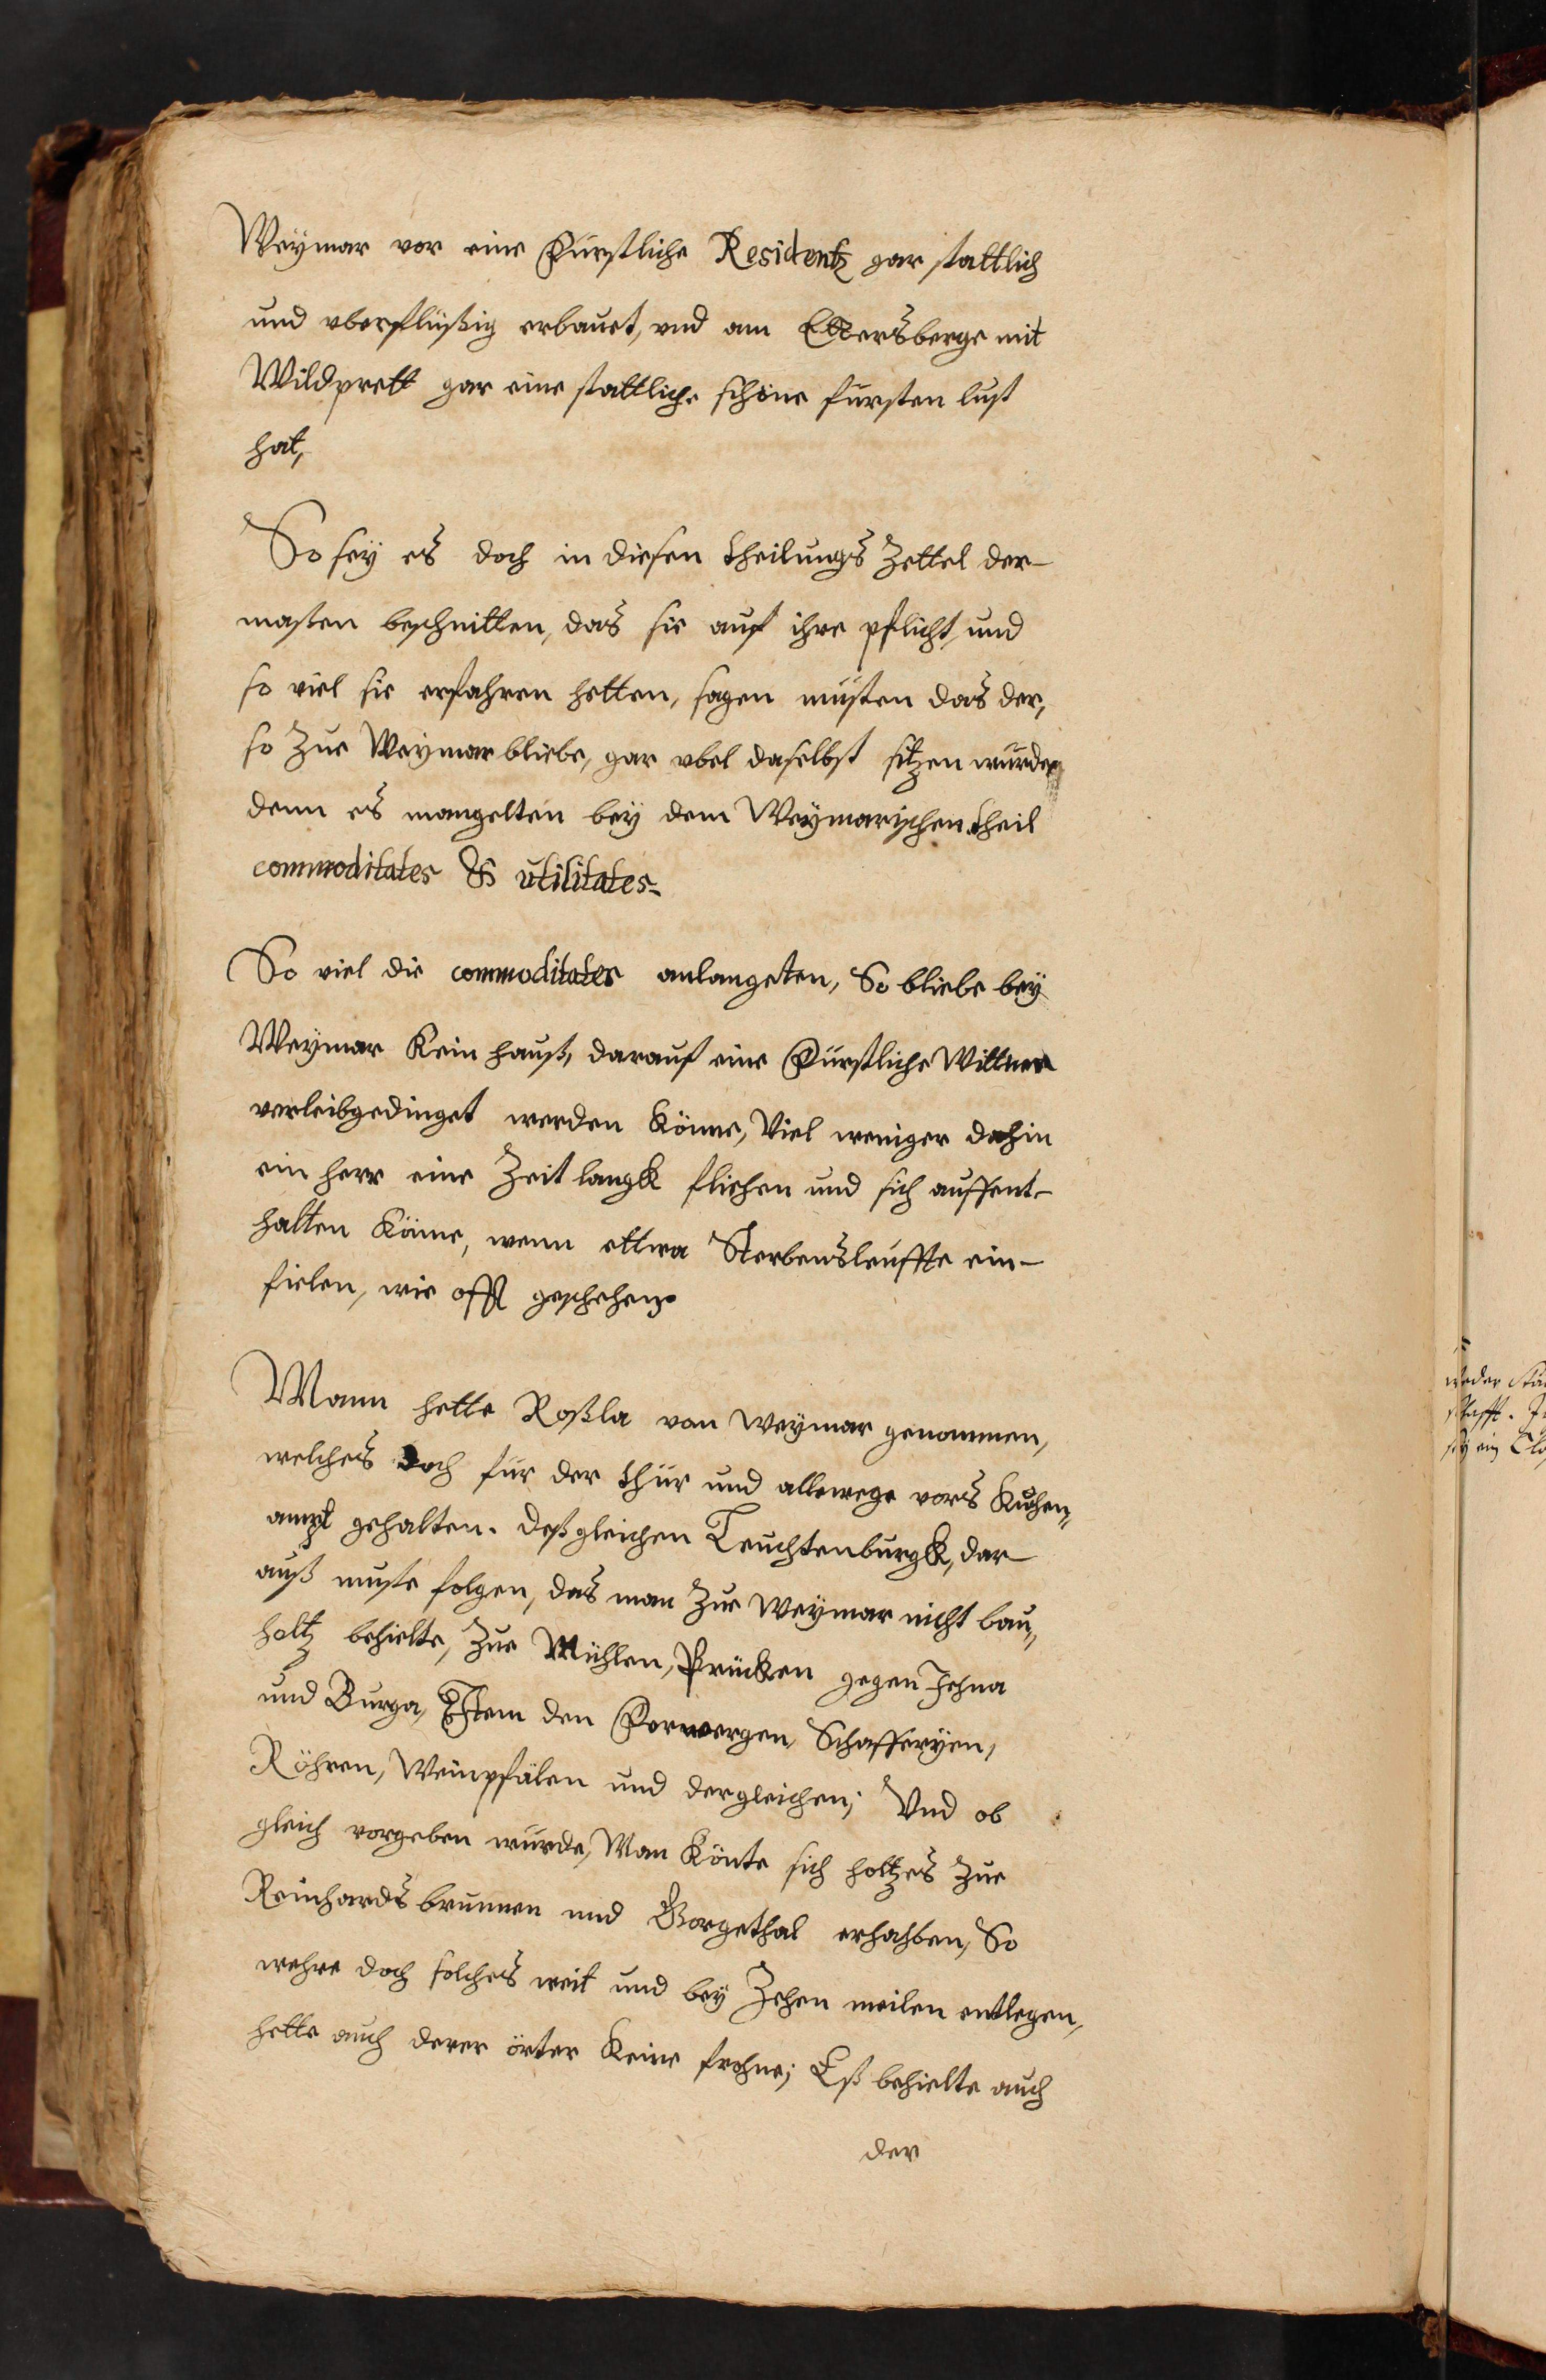 Weÿmar vor eine Fürstliche Residentz gar stattlich
und vberflüßig erbauet, vnd am Ettersberge mit
Wildprett gar eine stattliche schöne fürsten lust
hat,
So seÿ es doch in diesen theilungs Zettel der-
maßen beschnitten, das sie auf ihre pflicht, und
so viel sie erfahren hetten, sagen müsten das der,
so Zue Weÿmar bliebe, gar vbel daselbst sitzen wurde
denn es mangelten beÿ dem Weÿmarischen theil
commoditates & utilitates.
So viel die commoditates anlangeten, So bliebe beÿ
Weÿmar Kein hauß, darauf eine Fürstliche Wittwe
verleibgedinget werden Könne, Viel weniger dahin
ein herr eine Zeit langk fliehen und sich auffent-
halten Könne, wenn ettwa Sterbensleuffte ein-
fielen, wie offt geschehen.
Mann hette Roßla von Weÿmar genommen,
welches doch für der thür und allewege vors Kuchen„
ampt gehalten. deßgleichen Leuchtenburgk, dar-
auß muste folgen, das man Zue Weÿmar nicht bau„
holtz behielte, Zue Mühlen, Brücken gegen Jehna
und Burga, Item den Forwergen, Schafferÿen,
Röhren, Weinpfälen und dergleichen; Vnd ob
gleich vorgeben wurde, Man Könte sich holtzes Zue
Reinhardsbrunnen und Gorgethal erhahben, So
wehre doch solches weit und beÿ Zehen meilen entlegen,
hette auch derer örter Keine frohne; Eß behielte auch
der
weder
schafft.
seÿ ein